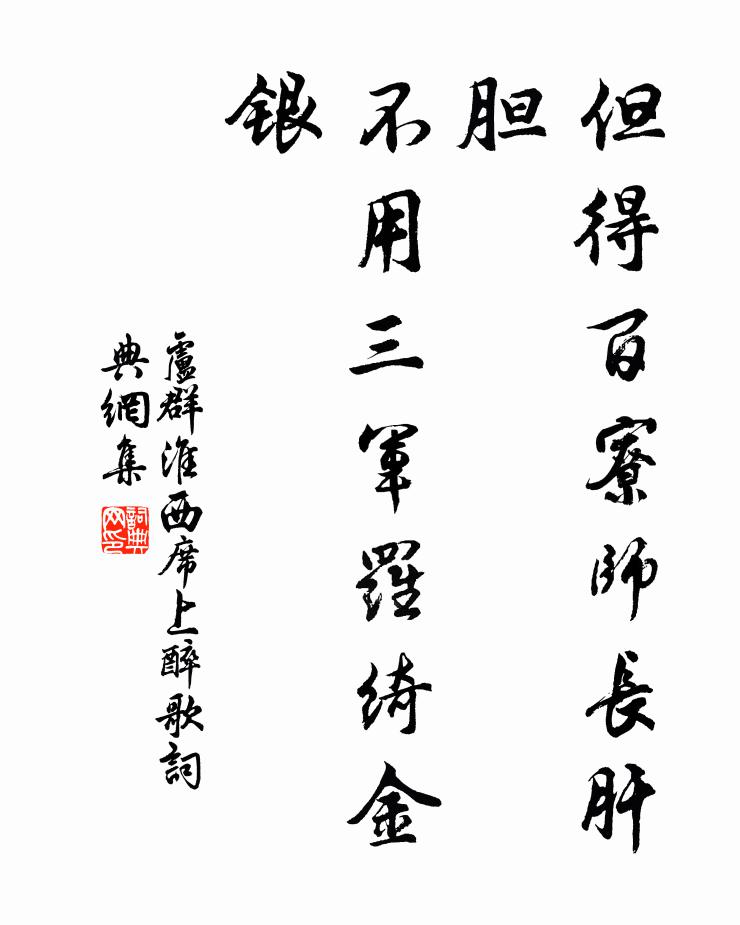 但得百寮師長肝
胆
不用三軍羅綺金
銀
盧群淮西席上醉歌詞
典網集
詞典网印